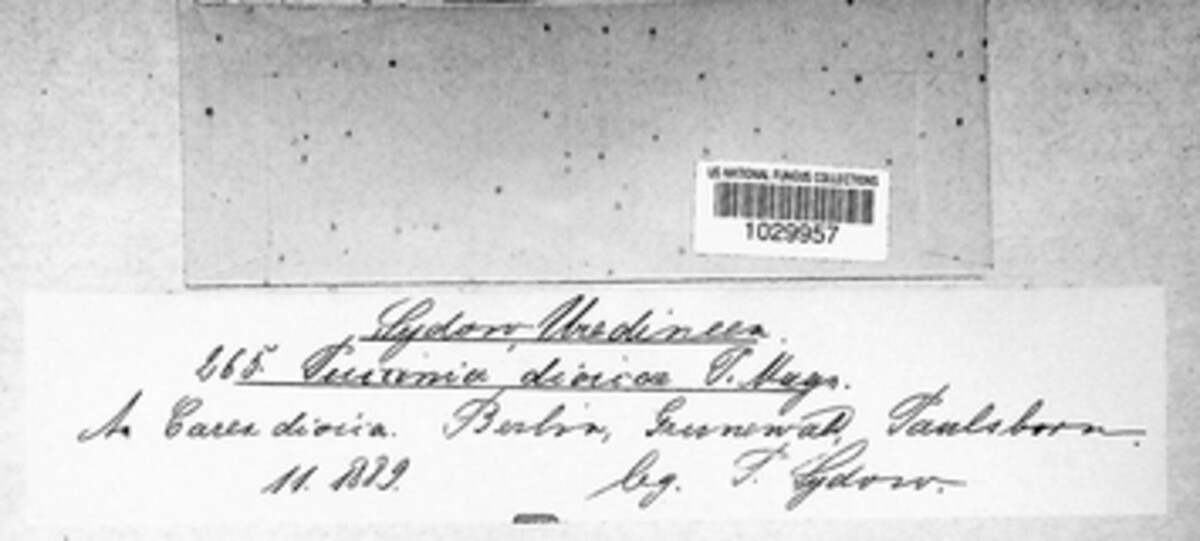 US NATIONAL FUNGUS COLLECTIONS
1029957
Sydow, Uredineen.
265. Puccinia dioicae P. Magn.
An Carex dioica. Berlin, Grunewald, Paulsborn.
11. 1889. leg. P. Sydow.